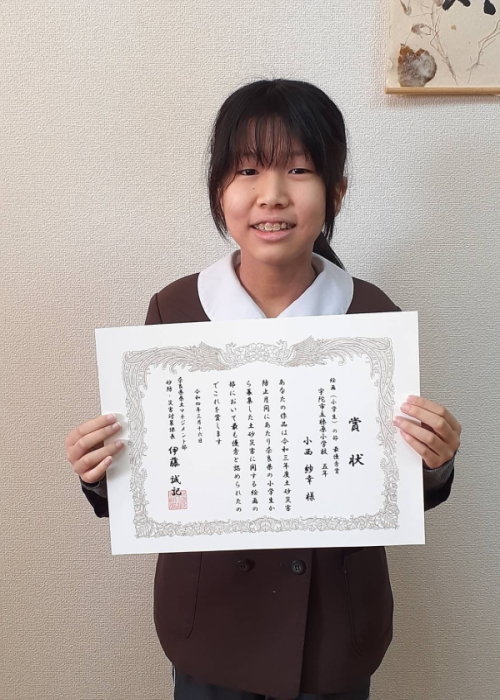 賞状
絵画（小学生）の部 最優秀賞
宇陀市立榛原小学校 五年
小西 紗幸 様
あなたの作品は令和三年度土砂災害
防止月間にあたり奈良県の小学生か
ら募集した土砂災害に関する絵画の
部において最も優秀と認められたの
でこれを賞します
令和四年三月十六日
奈良県県土マネジメント部
砂防・災害対策課長 伊藤 誠記